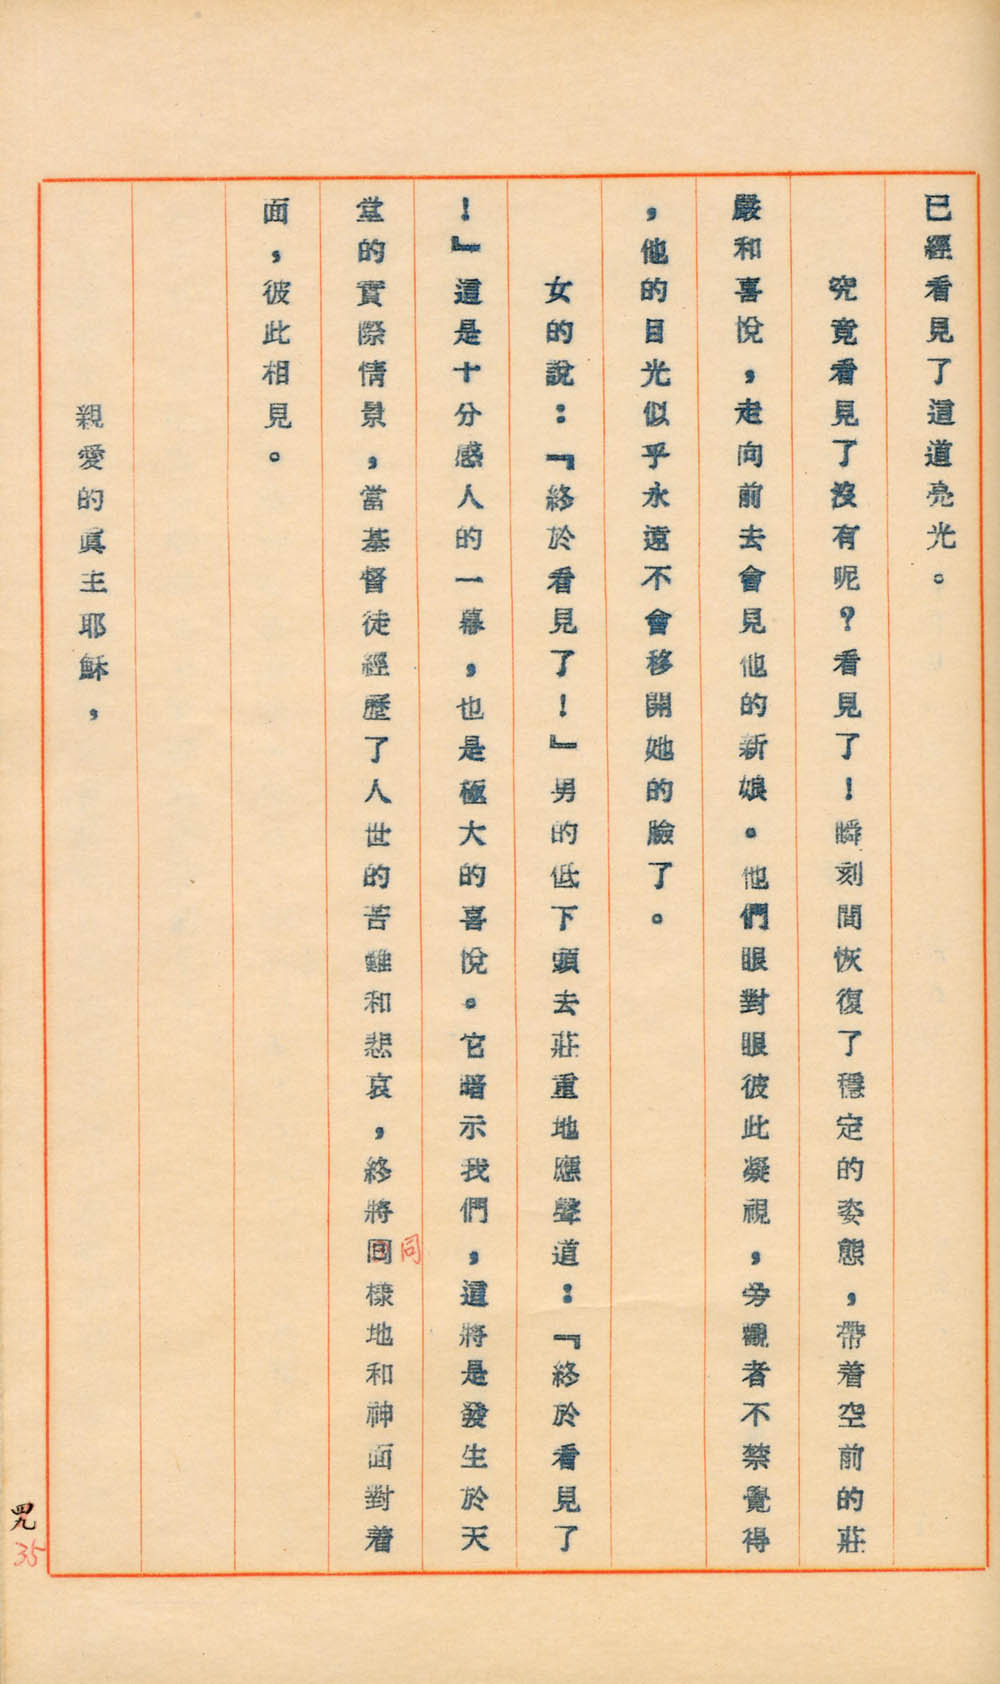 已經看見了這道亮光。
究竟看見了沒有呢?看見了!瞬刻間恢復了穩定的姿態,帶着空前的莊
嚴和喜悅,走向前去會見他的新娘。他們眼對眼彼此凝視,旁觀者不禁覺得
,他的目光似乎永遠不會移開她的臉了。
女的說:『終於看見了!』男的低下頭去莊重地應聲道:『終於看見了
!』這是十分感人的一幕,也是極大的喜悅。它暗示我們,這將是發生於天
堂的實際情景,當基督徒經歷了人世的苦難和悲哀,終將回樣地和神面對着
同
面,彼此相見。
親愛的眞主耶穌,
四九
35